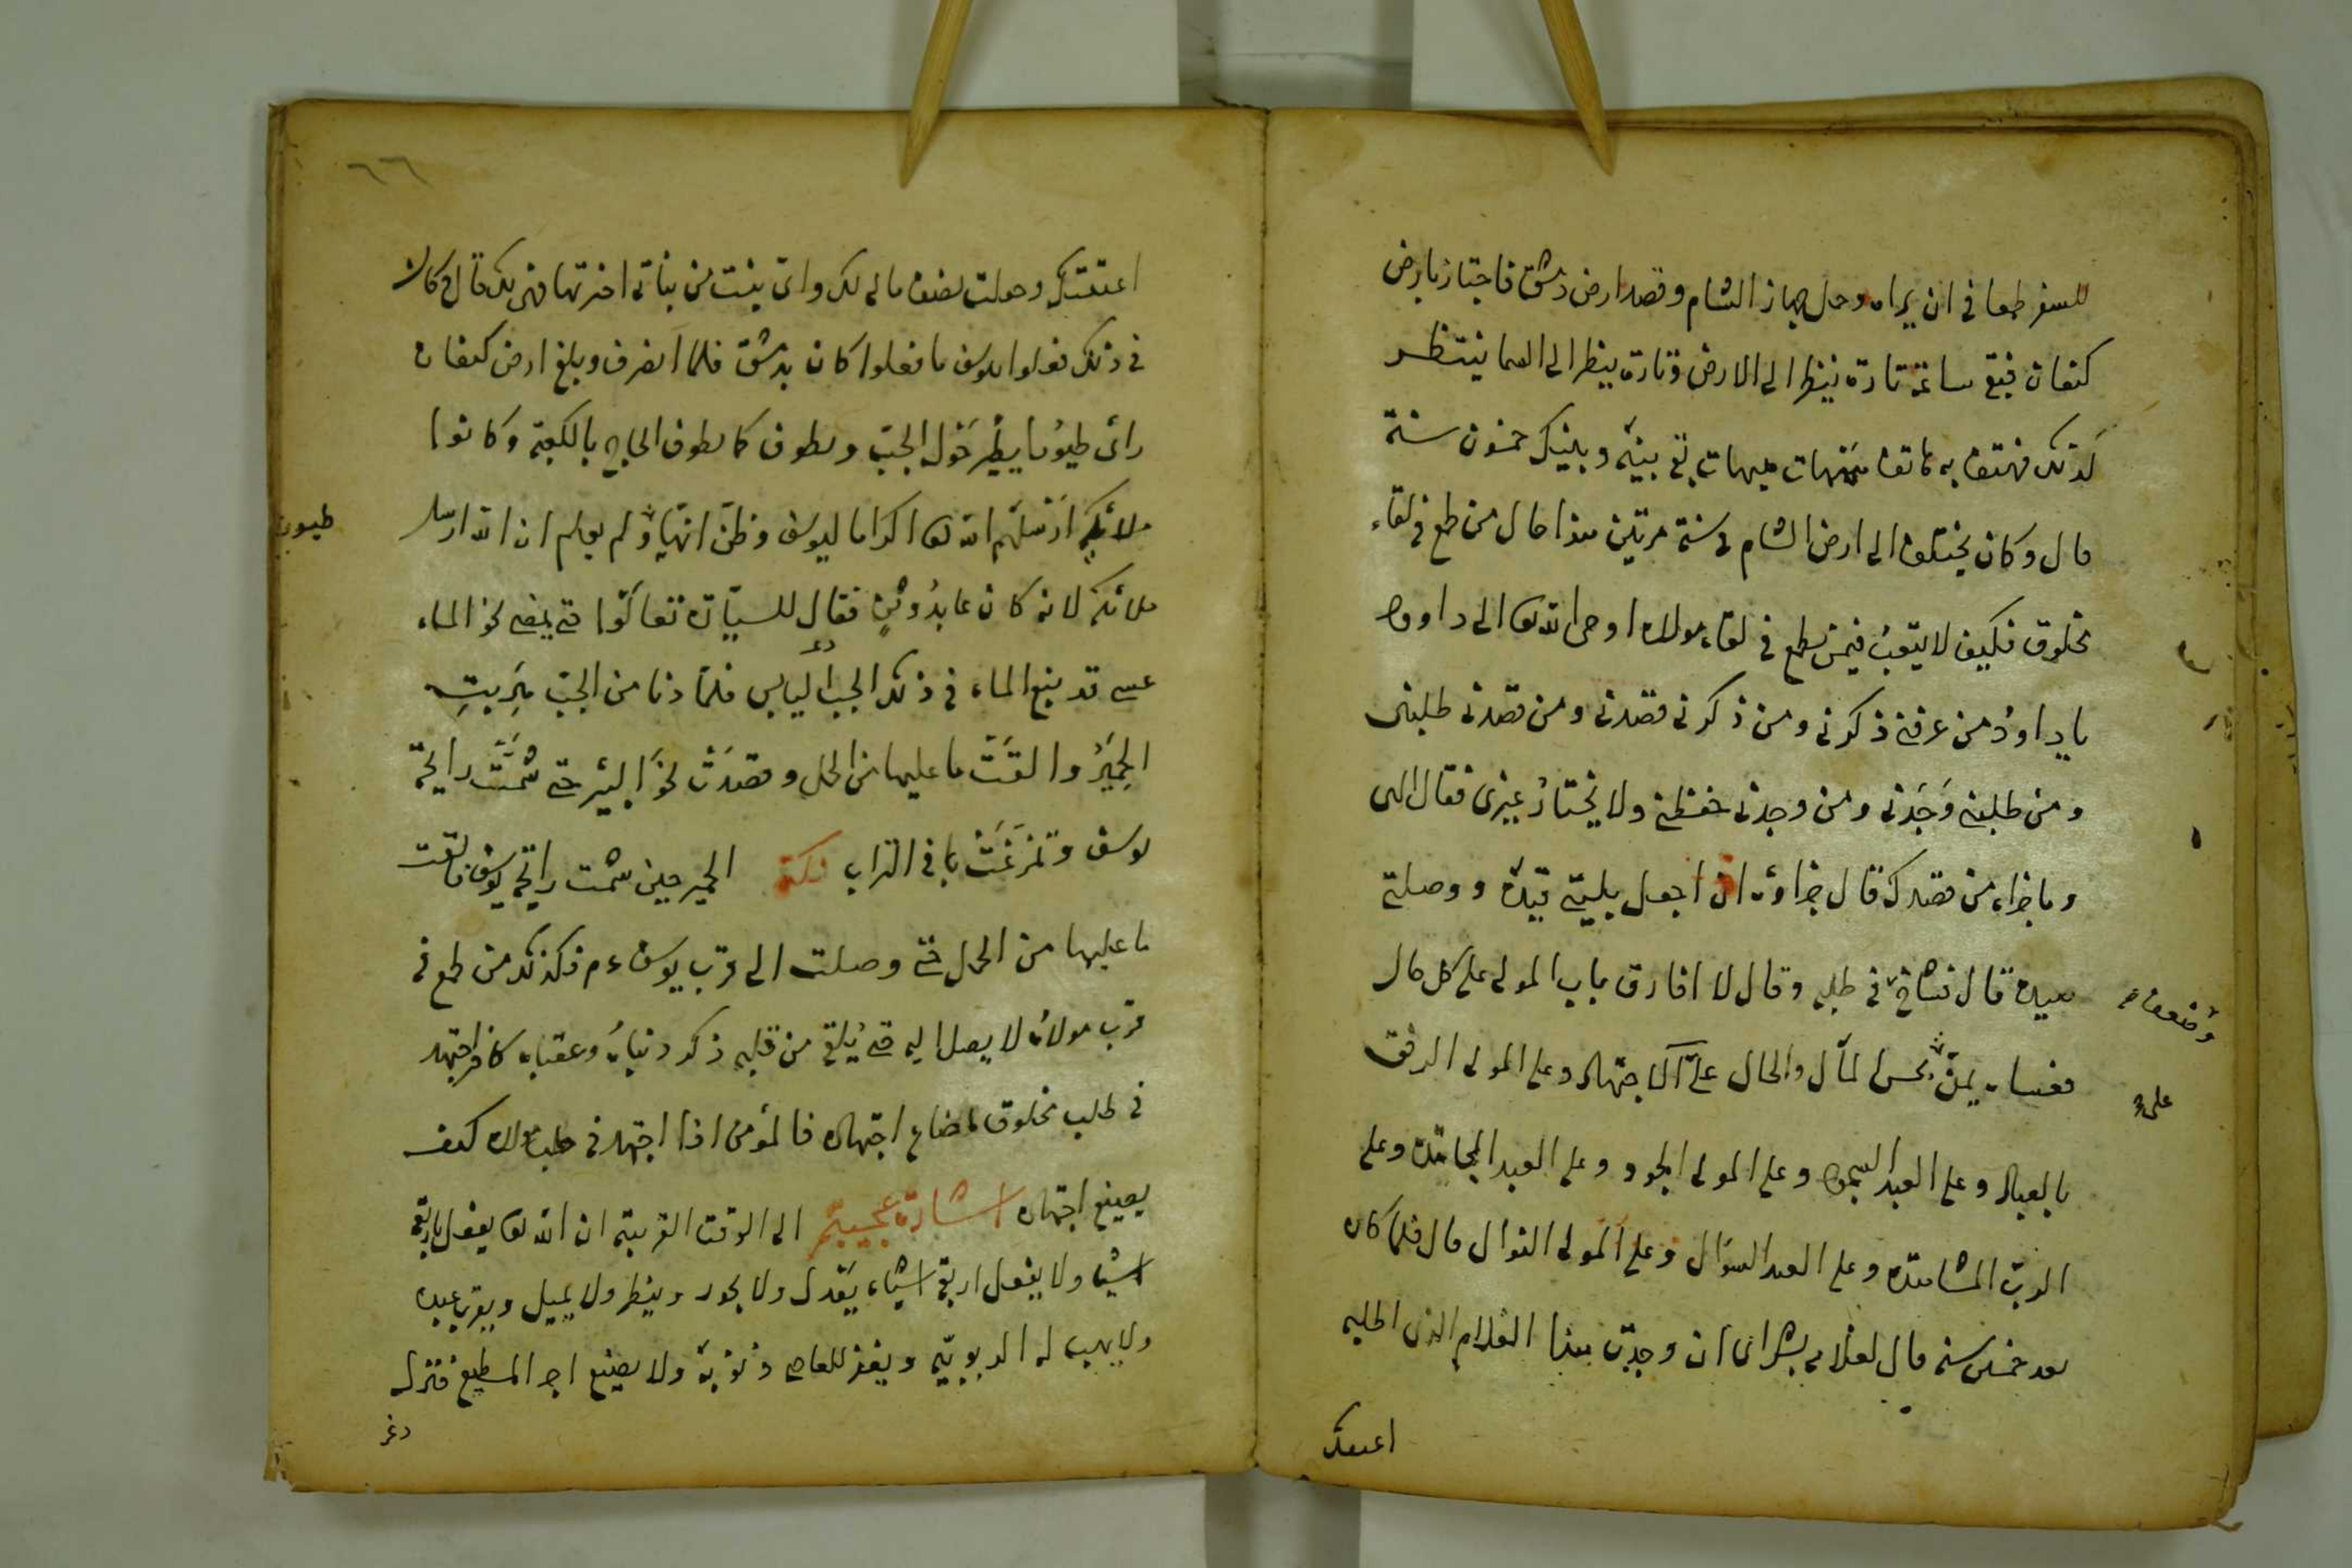 للسفر طمعا فى ان يراه وحمل جهاز الشام وقصد ارض دمشق فاجتاز بارض
كنعان فبقى ساعة تارة ينظر الى الارض وتارة ينظر الى السما ينتظر
كذلك فهتف به هاتف هيهات هيهات بقى بينه وبينك خمسون سنة
قال وكان يختلف الى ارض الشام فى سنة مرتين هذا حال من طمع فى لقاء
مخلوق فكيف لا يتعب فيمن يطمع فى لقاء مولاه اوحى الله تعا الى داود
يا داود من عرفنى ذكرنى ومن ذكرنى قصدنى ومن قصدنى طلبنى
ومن طلبنى وجدنى ومن وجدنى حفظنى ولا يختار غيرى فقال الهى
وما جزاء من قصدك قال جزاؤه ان اجعل بليتى قيده ووصلتى
صيده قال فى طلبه وقال لا افارق باب المولى على كل حال
المآل والحال على الاجتهاد وعلى المولى الرفق
بالعباد وعلى العبد السجود وعلى المولى الجود وعلى العبد المجاهدة وعلى
الرب المشاهدة وعلى العبد السؤال وعلى المولى النوال قال فلما كان
بعد خمسين سنة قال لغلامه بشراى ان وجدت هذا الغلام الذى اطلبه
اعتقتك
وضعفاه
على
٦٦
اعتقتك وجعلت نصف مالى لك واى بنت من بناتى اخترتها فهى لك قال وكان
فى ذلك فعلوا بيوسف ما فعلوا كان بدمشق فلما انصرف وبلغ ارض كنعان
راى طيورا يطير حول الجب ويطوف كما يطوف الحاج بالكعبة وكانوا
ملائكة ارسلهم الله تعا اكراما ليوسف وظن انها ولم يعلم ان الله ارسل
ملائكة لانه كان عابد وثن فقال للسيارة تعالوا حتى نمضى نحو الماء
عسى قد ينبع الماء فى ذلك الجب اليابس فلما دنا من الجب هربت
الحمير والقت ما عليها من الحمل وقصدت نحو البئر حتى شمت رايحة
يوسف وتمرغت بها فى التراب نكتة الحمير حين شمت رايحة يوسف فالقت
ما عليها من الحمل حتى وصلت الى قرب يوسف ءم فكذلك من طمع فى
قرب مولاه لا يصل اليه حتى يلقى من قلبه ذكر دنياه وعقباه كافر اجتهد
فى طلب مخلوق ماضاع اجتهاده فالمؤمن اذا اجتهد فى طلب مولاه كيف
يضيع اجتهاده اشارة عجيبة الى الوقت القريبة ان الله تعا يفعل اربعة
اشيا ولا يفعل اربعة اشياء يعدل ولا يجور وينظر ولا يميل ويقرب عبده
ولا يهب له الربوبية ويغفر للعاصى ذنوبه ولا يضيع اجر المطيع فنزل
طيور